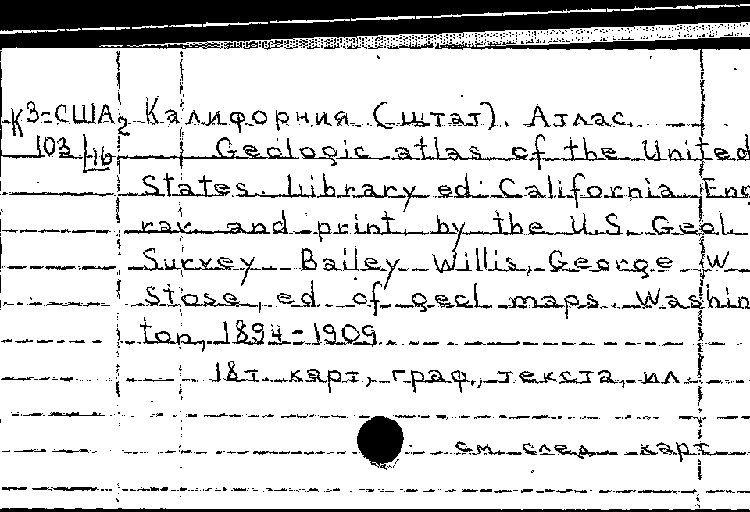 К3-США2 Калифорния (штат). Атлас.
103 16 Geologic atlas of the United
States. Library ed. California Eng
rav. and print. by the U.S. Geol.
Survey Bailey Willis, George W
Stose, ed of geol maps. Washin
ton, 1894-1909
18т. карт, граф., текста, ил.
см след карт